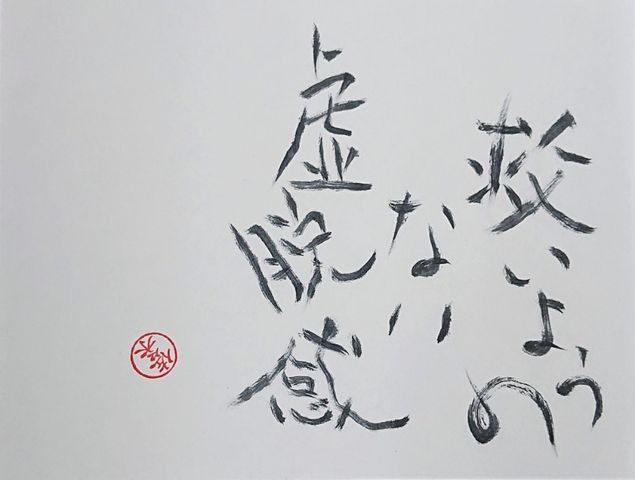 救いようの
ない
虚脱感